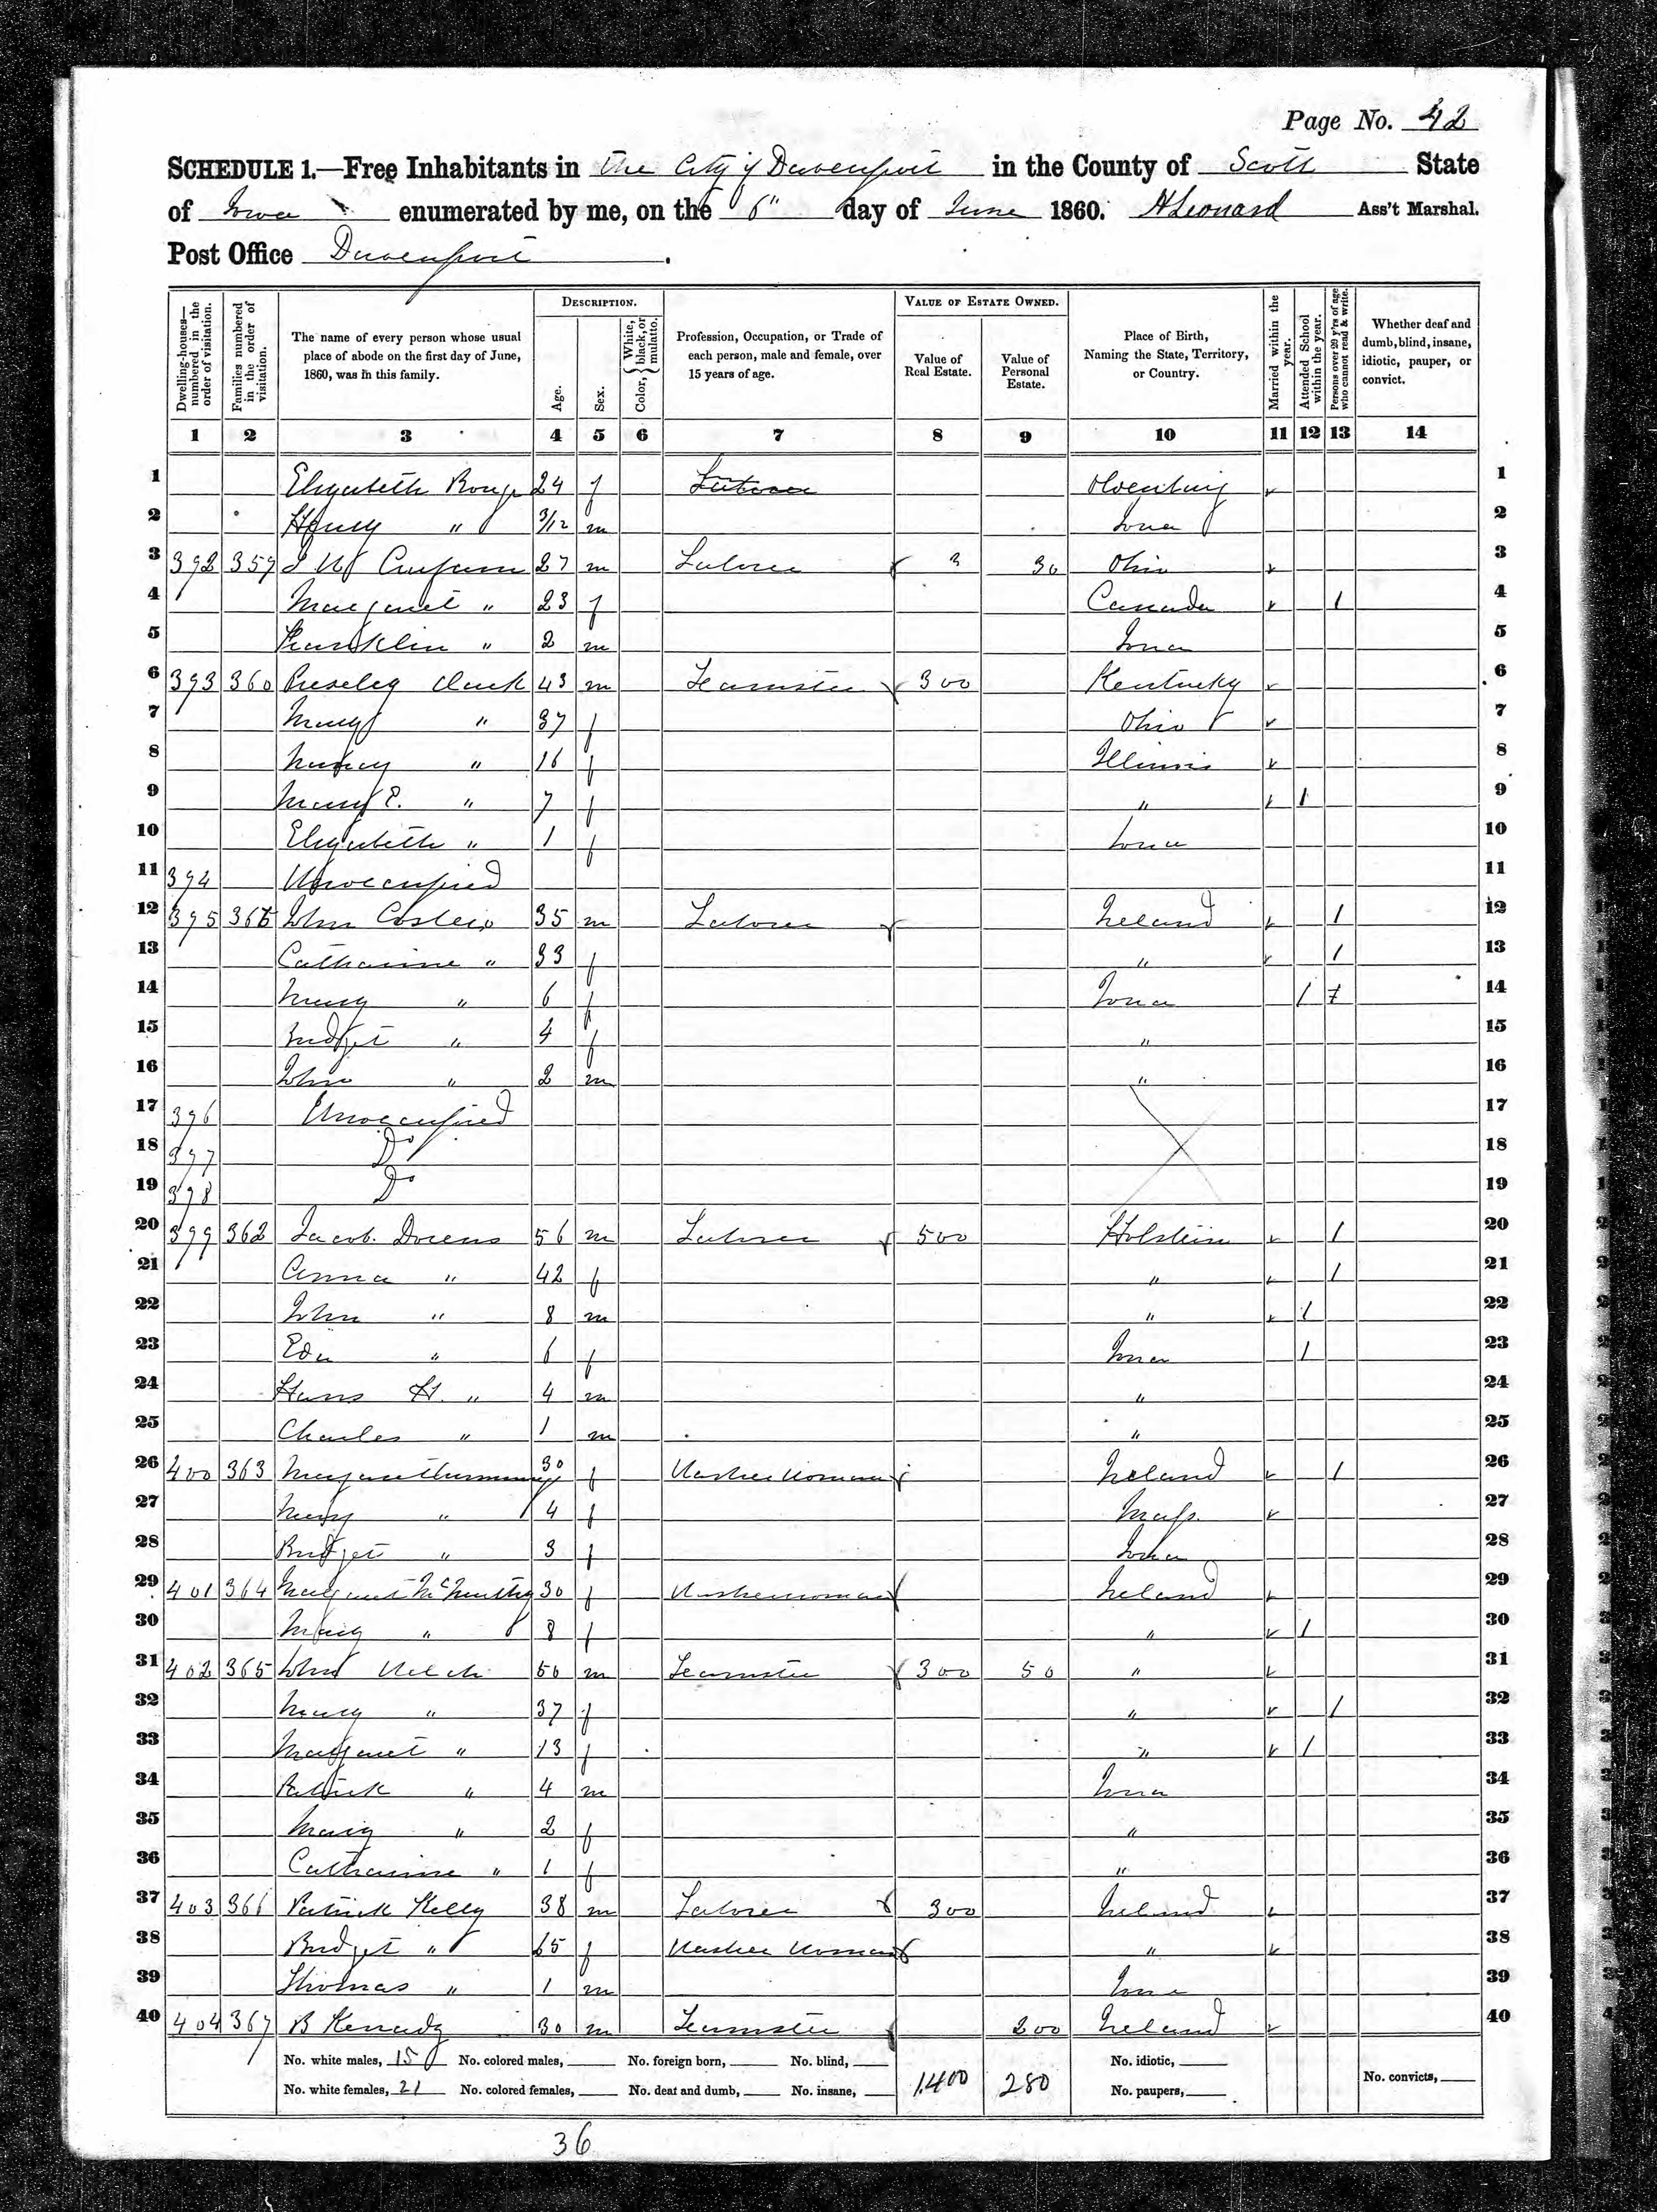 Page No. 42
SCHEDULE 1.—Free Inhabitants in The City of Davenport in the County of Scott State
of Iowa enumerated by me, on the 6" day of June 1860. H Leonard Ass't Marshal.
Post Office Davenport.
Dwelling-houses—numbered in the order of visitation.
Families numbered in the order of visitation.
The name of every person whose usual place of abode on the first day of June, 1860, was in this family.
DESCRIPTION.
Age.
Sex.
Color, { White, black, or mulatto.
Profession, Occupation, or Trade of each person, male and female, over 15 years of age.
VALUE OF ESTATE OWNED.
Value of Real Estate.
Value of Personal Estate.
Place of Birth, Naming the State, Territory, or Country.
Married within the year.
Attended School within the year.
Persons over 20 y'rs of age who cannot read & write.
Whether deaf and dumb, blind, insane, idiotic, pauper, or convict.
1 2 3 4 5 6 7 8 9 10 11 12 13 14
1 Elizabeth 24 f Laborer 1
2 Henry " 3/12 m Iowa 2
3 392 359 27 m Laborer 3 30 Ohio 3
4 Margaret " 23 f Canada 1 4
5 Franklin " 2 m Iowa 5
6 393 360 Preseley Clark 43 m Teamster 300 Kentucky 6
7 Mary " 37 f Ohio 7
8 Nancy " 16 f Illinois 8
9 Mary E. " 7 f " 1 9
10 Elizabeth " 1 f Iowa 10
11 394 Unoccupied 11
12 395 361 John 35 m Laborer Ireland 1 12
13 Catharine " 33 f " 1 13
14 Mary " 6 f Iowa 1 14
15 Bridget " 4 f " 15
16 John " 2 m " 16
17 396 Unoccupied 17
18 397 Do 18
19 398 Do 19
20 399 362 Jacob Dorens 56 m Laborer 500 Holstein 1 20
21 Anna " 42 f " 1 21
22 John " 8 m " 1 22
23 Eda " 6 f Iowa 1 23
24 Hans H. " 4 m " 24
25 Charles " 1 m " 25
26 400 363 Margaret 30 f Washer Woman Ireland 1 26
27 Mary " 4 f Mass. 27
28 Bridget " 3 f Iowa 28
29 401 364 Margaret 30 f Washerwoman Ireland 29
30 Mary " 8 f " 1 30
31 402 365 John Welch 50 m Teamster 300 50 " 31
32 Mary " 37 f " 1 32
33 Margaret " 13 f " 1 33
34 Patrick " 4 m Iowa 34
35 Mary " 2 f " 35
36 Catharine " 1 f " 36
37 403 366 Patrick Kelly 38 m Laborer 300 Ireland 37
38 Bridget " f Washer Woman " 38
39 Thomas " 1 m Iowa 39
40 404 367 B Kenedy 30 m Teamster 200 Ireland 40
No. white males, 15 No. colored males, No. foreign born, No. blind, No. idiotic,
No. white females, 21 No. colored females, No. deaf and dumb, No. insane, 1,400 280 No. paupers, No. convicts,
36